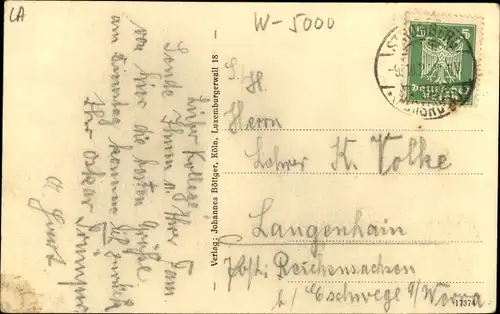 LA
W-5000
Lieber Kollege!
Sende Ihnen u. Ihrer Fam.
von hier die besten Grüße
am Dienstag komme ich zurück
Ihr Oskar
Verlag: Johannes Böttger, Köln, Luxemburgerwall 18
S./H.
Herrn
Lehrer K. Volke
Langenhain
Reichensachsen
b/ Eschwege a/Werra
17374